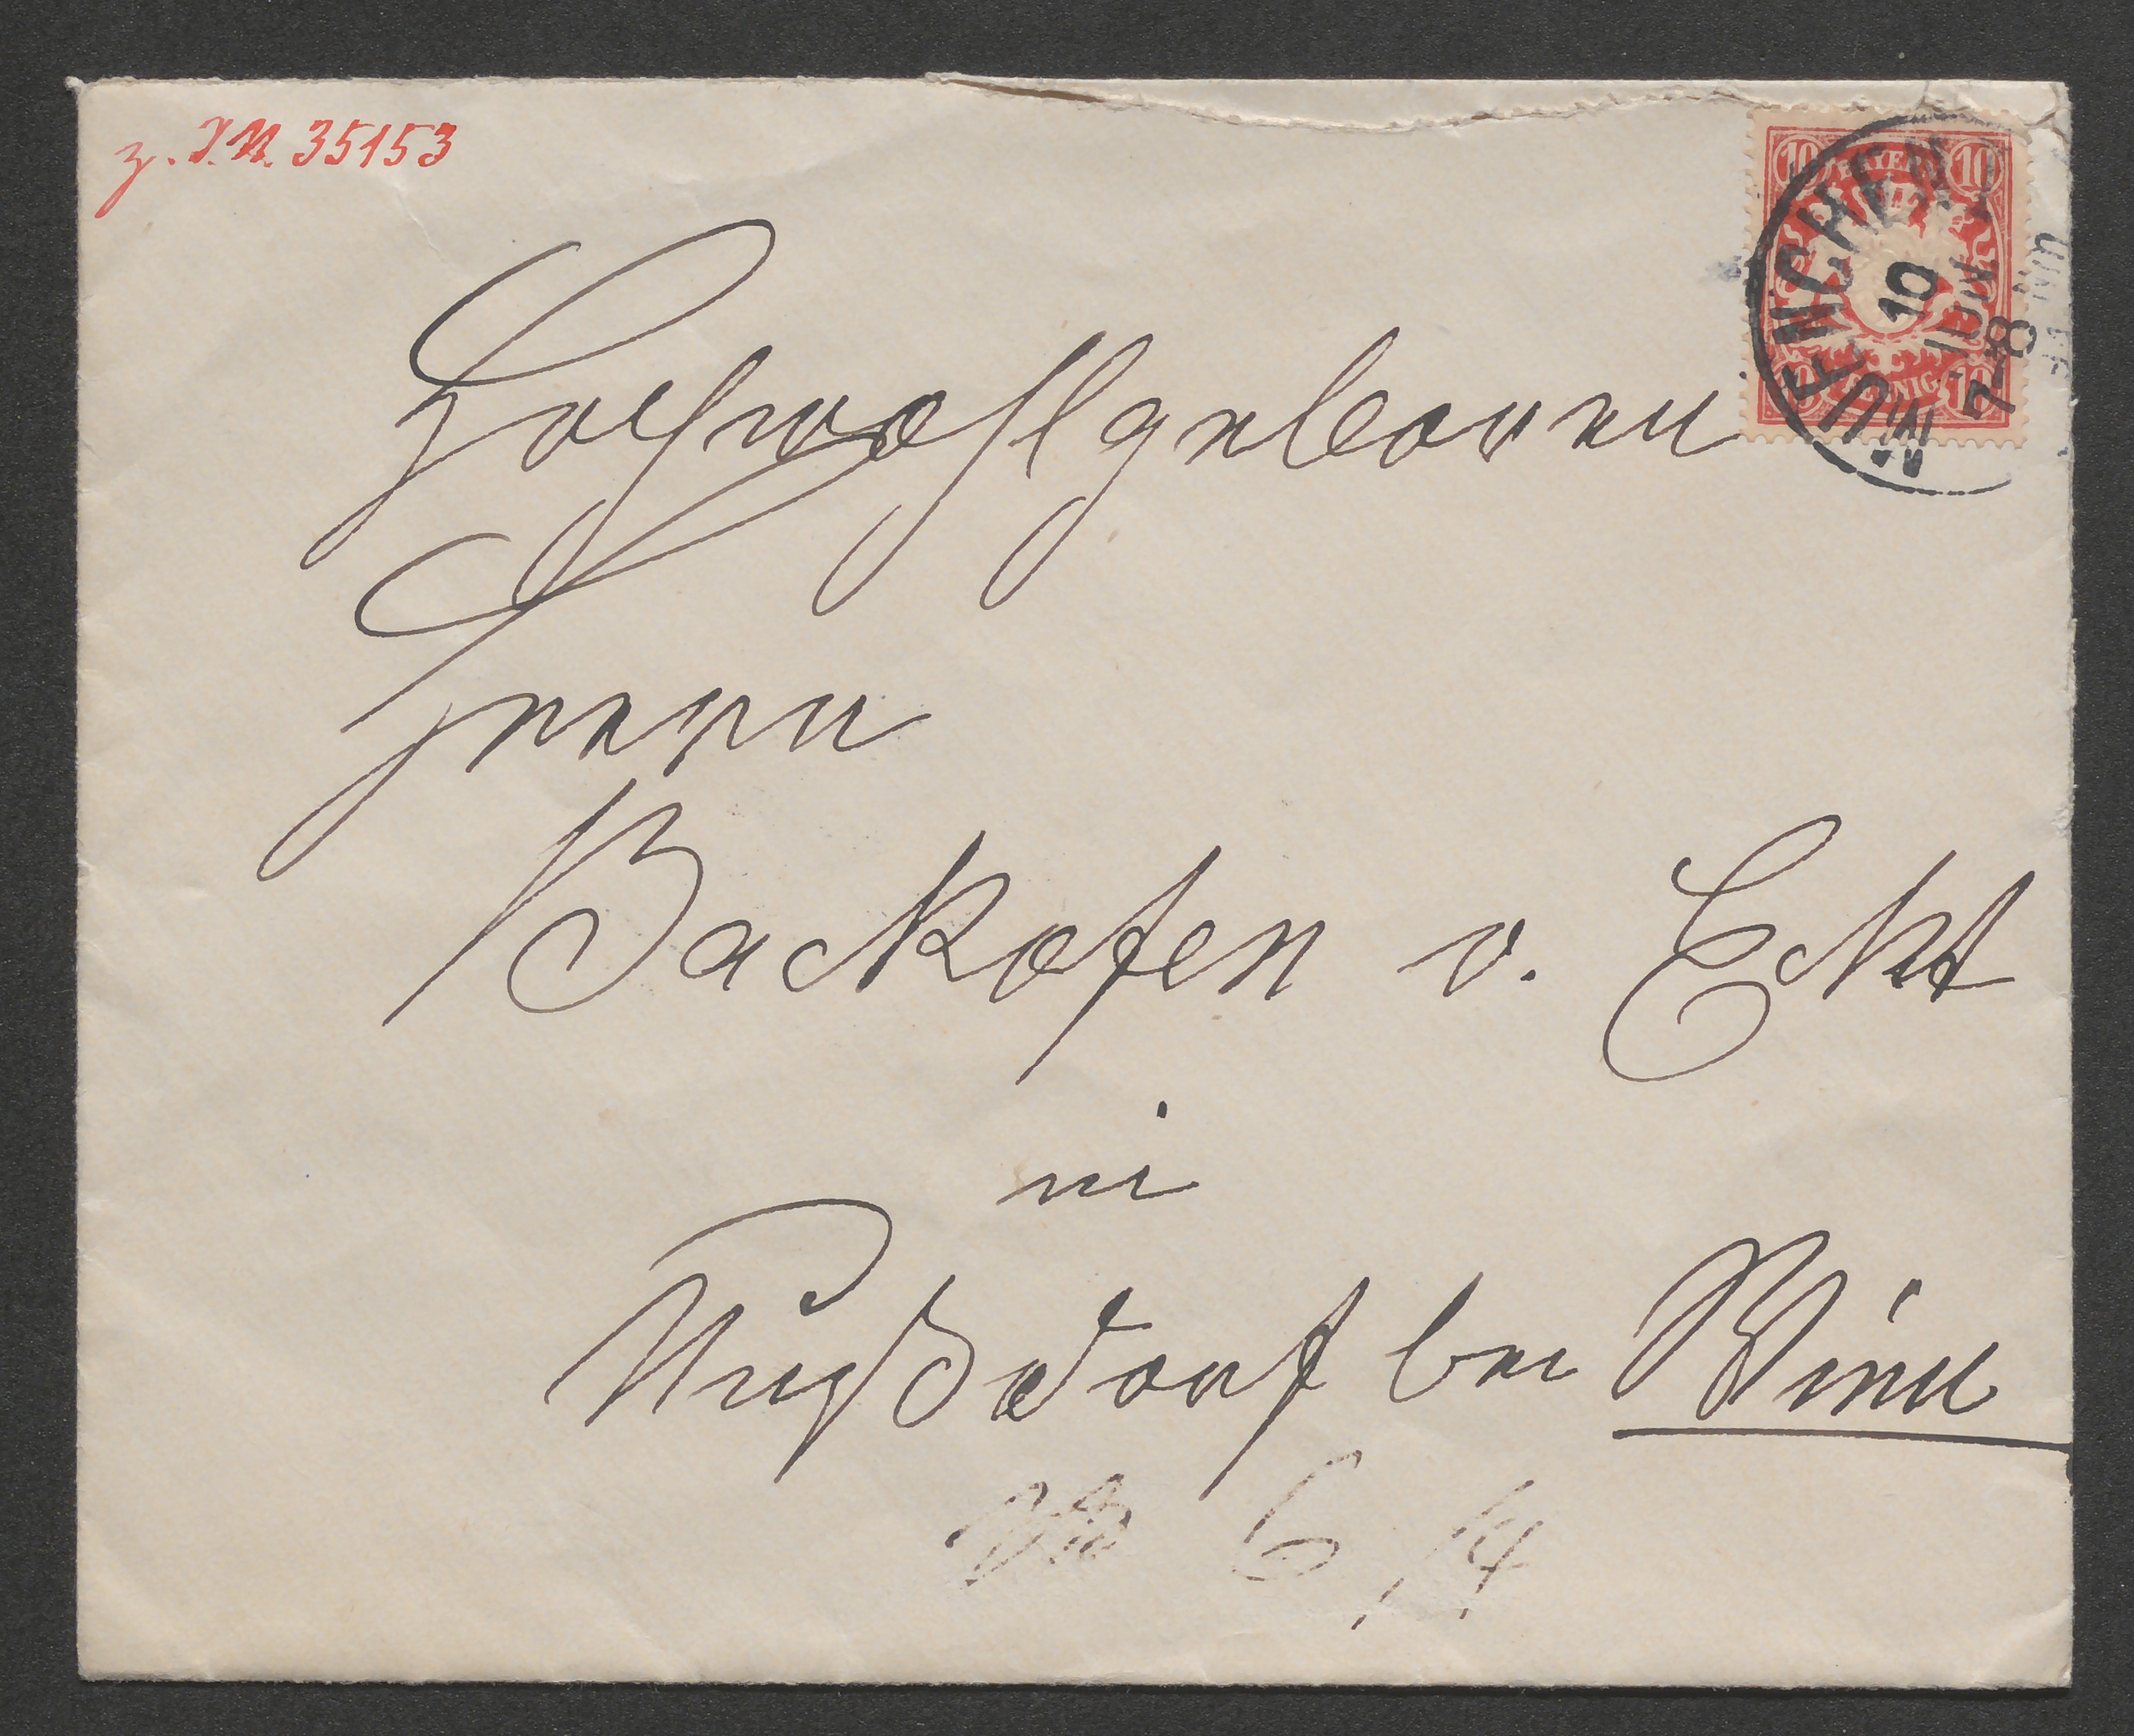 z. I.N. 35153
BAYERN
10 10
MUENCHEN
10
JUL
7-8 Nm
PFENNIG 10
Hochwohlgeboren
Herrn
Backofen v. Echt
in
Nußdorf bei Wien
6